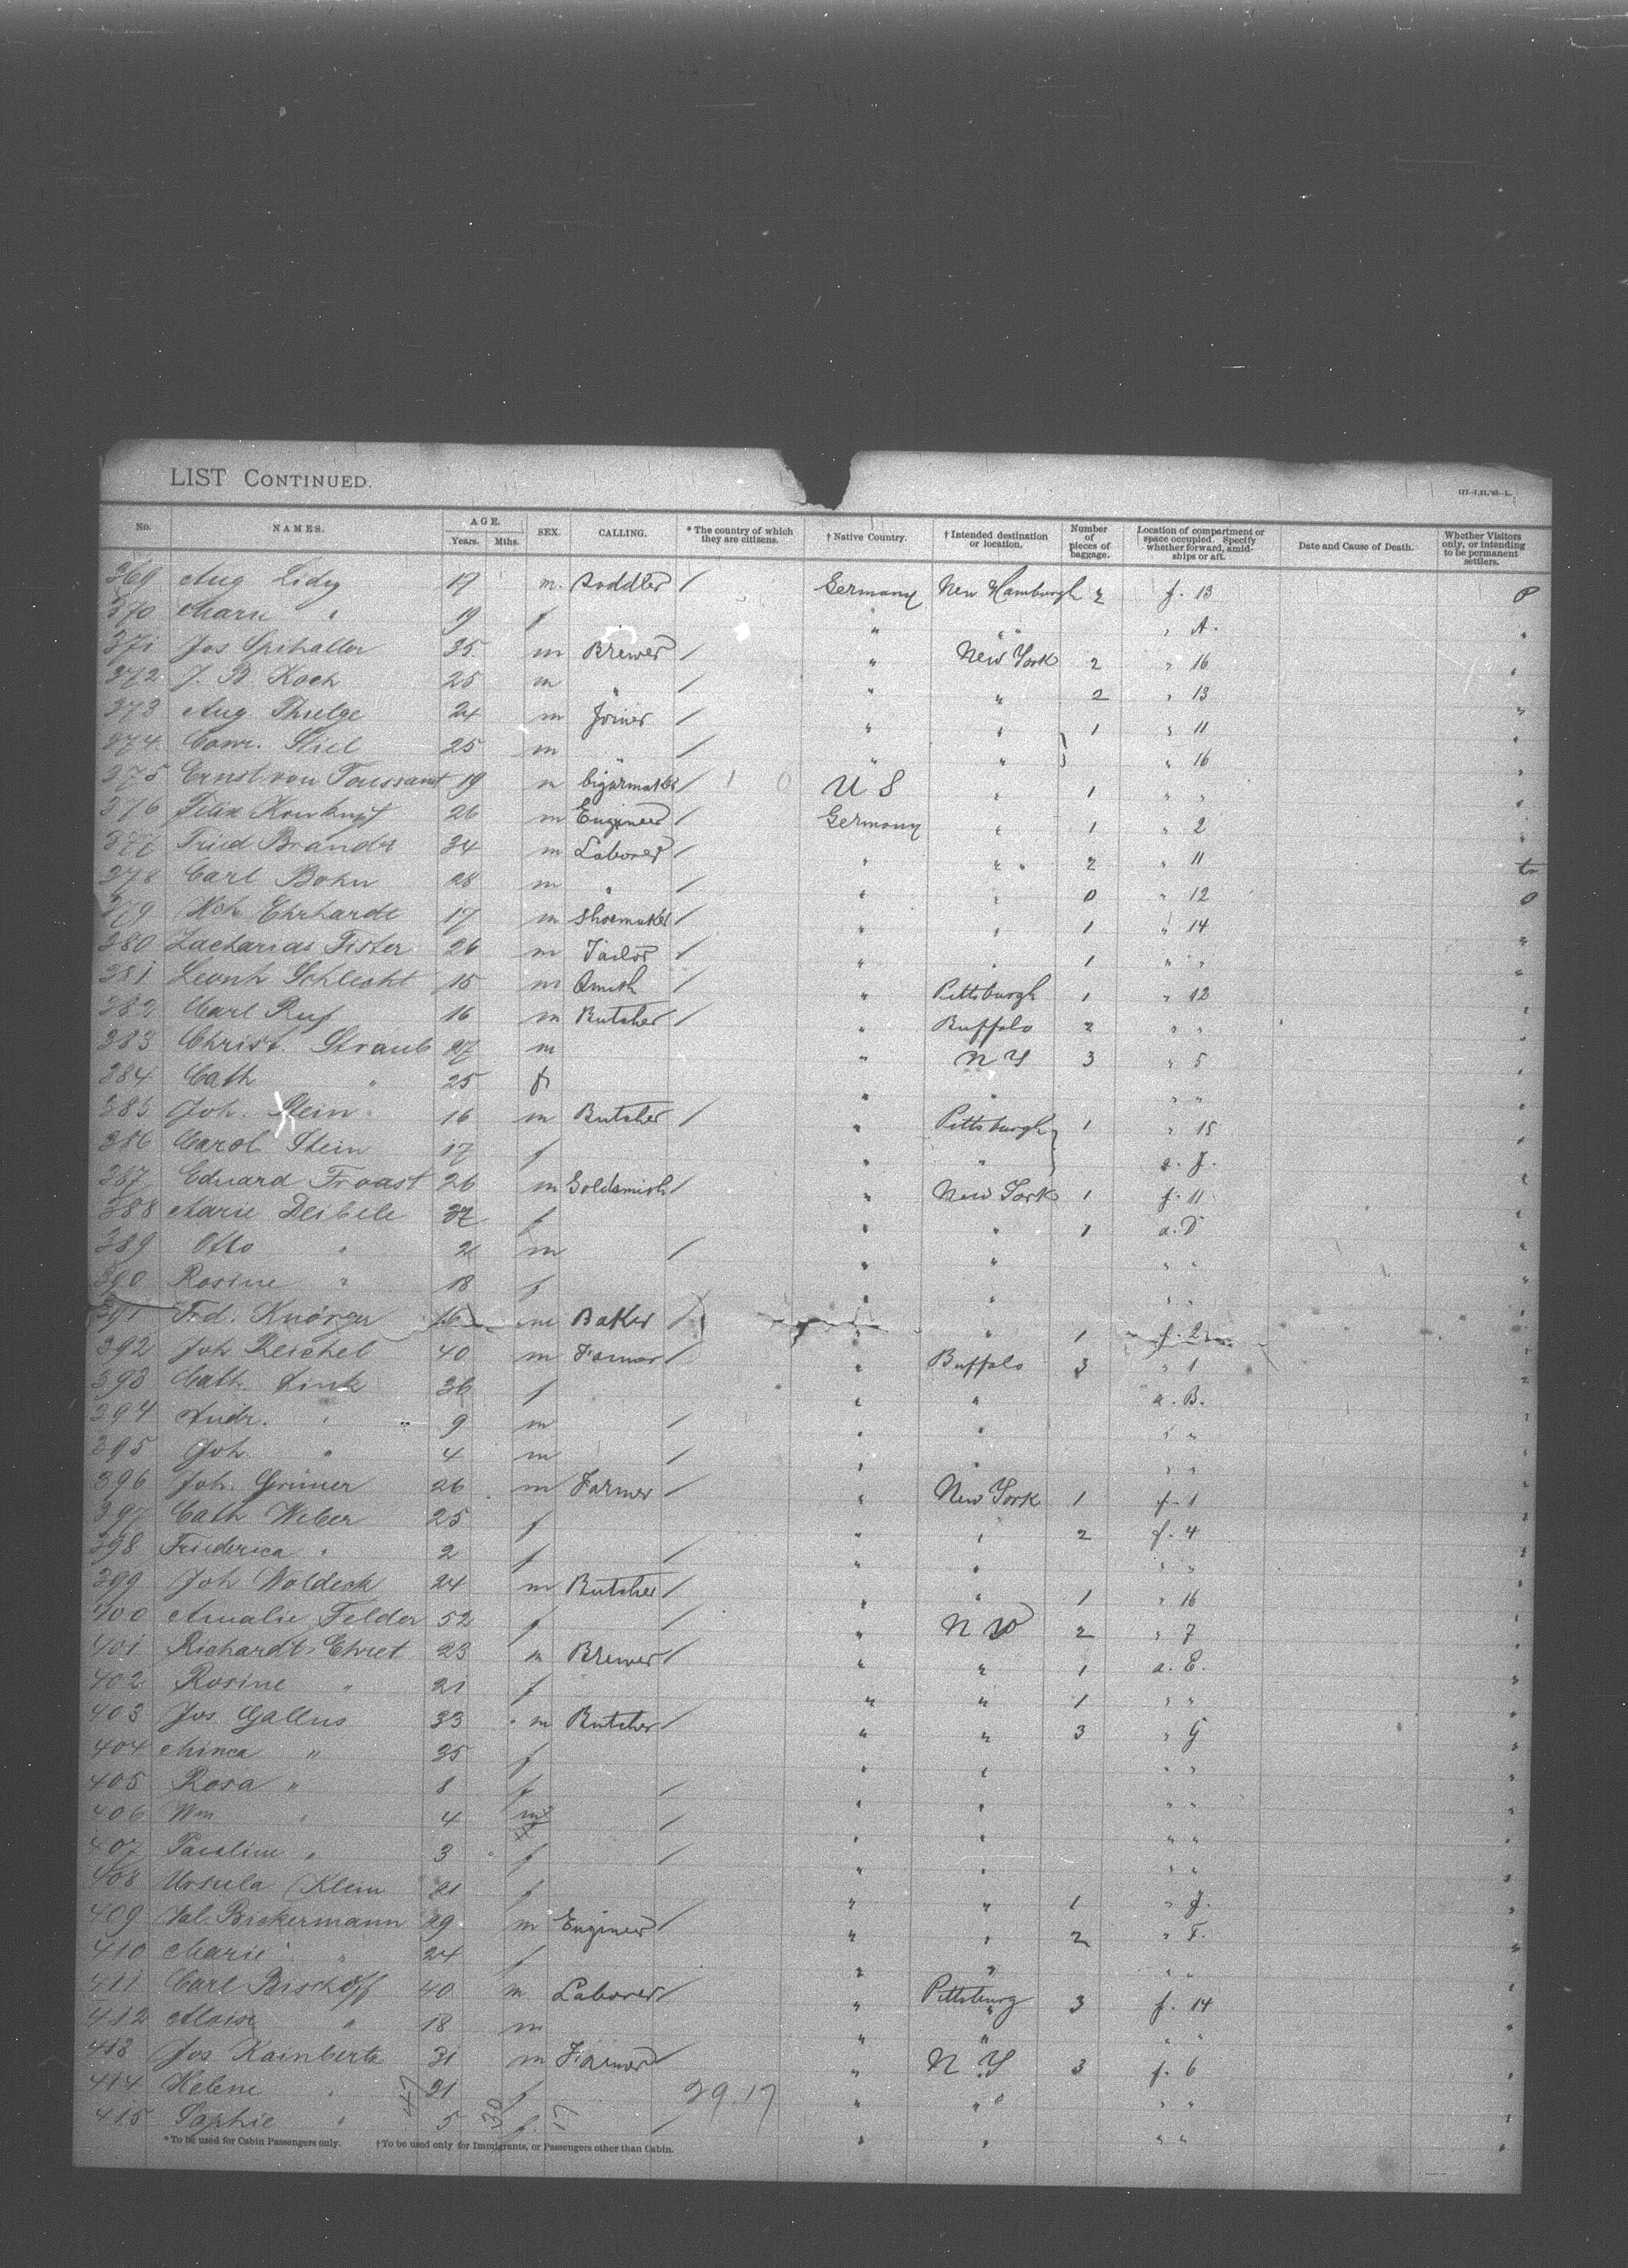 LIST CONTINUED.
117.-7,21,'85-L.
No. NAMES. AGE. Years. Mths. SEX. CALLING. * The country of which they are citizens. † Native Country. † Intended destination or location. Number of pieces of baggage. Location of compartment or space occupied. Specify whether forward, amidships or aft. Date and Cause of Death. Whether Visitors only, or intending to be permanent settlers.
369 Aug Lidy 19 m. / Germany New Hamburgh 2 f. 13
370 Marie " 19 f " " " A.
371 Jos 35 m Brewer / " New York 2 " 16
372 J. B. Koch 25 m " / " " 2 " 13
373 Aug. 24 m Joiner / " " 1 " 11
374 Conr. Stiel 25 m " / " " " 16
375 Ernst von Toussaint 19 m Cigarmaker / U S " 1 " "
376 Felix 26 m Engineer / Germany " 1 " 2
377 Fried Brandt 34 m Laborer / " " 2 " 11
378 Carl Bohn 28 m " / " " 0 " 12
379 Ehrhardt 17 m Shoemaker / " " 1 " 14
380 Zacharias Fister 26 m Tailor / " " 1 " "
381 Leonh Schlecht 15 m Smith / " Pittsburgh 1 " 12
382 Carl Ruf 16 m Butcher / " Buffalo 2 " "
383 Christ. Straub 27 m " N Y 3 " 5
384 Cath " 25 f " " " "
385 Joh. Stein 16 m Butcher / " Pittsburgh 1 " 15
386 Carol. Stein 17 f " " a. J.
387 Eduard Froast 26 m Goldsmith / " New York 1 f. 11
388 Marie Deibele f " " 1 a. D
389 Otto " m / " " " "
390 Rosine " 18 f " " " "
391 Frd. Knörzer 16 m Baker / " " 1 f. 2
392 Joh Reichel 40 m Farmer / " Buffalo 3 " 1
393 Cath. Link 36 f " " a. B.
394 Andr. " 9 m / " " " "
395 Joh " 4 m / " " " "
396 Joh. Grüner 26 m Farmer / " New York 1 f. 1
397 Cath Weber 25 f " " 2 f. 4
398 Friederica " 2 f / " " " "
399 Joh Woldeck 24 m Butcher / " " 1 " 16
400 Amalie Felder 52 f / " N 2 " 7
401 Richardt Ehret 23 m Brewer / " " 1 a. E.
402 Rosine " 21 f " " 1 " "
403 Jos Gallus 33 m Butcher / " " 3 " G
404 Minca " 35 f " " " "
405 Rosa " 8 f / " " " "
406 Wm " 4 m / " " " "
407 Pauline " 3 f / " " " "
408 Ursula Klein 21 f " " 1 " J.
409 Val. Bickermann 29 m Engineer / " " 2 " F.
410 Marie " 24 f " " " "
411 Carl Bischoff 40 m Laborer / " Pittsburg 3 f. 14
412 Alois " 18 m " " " "
413 Jos. Kainbertz 31 m Farmer / " N. Y 3 f. 6
414 Helene " 21 f 29.17 " " " "
415 Sophie " 5 f. / " " " "
47 30 17
*To be used for Cabin Passengers only. †To be used only for Immigrants, or Passengers other than Cabin.